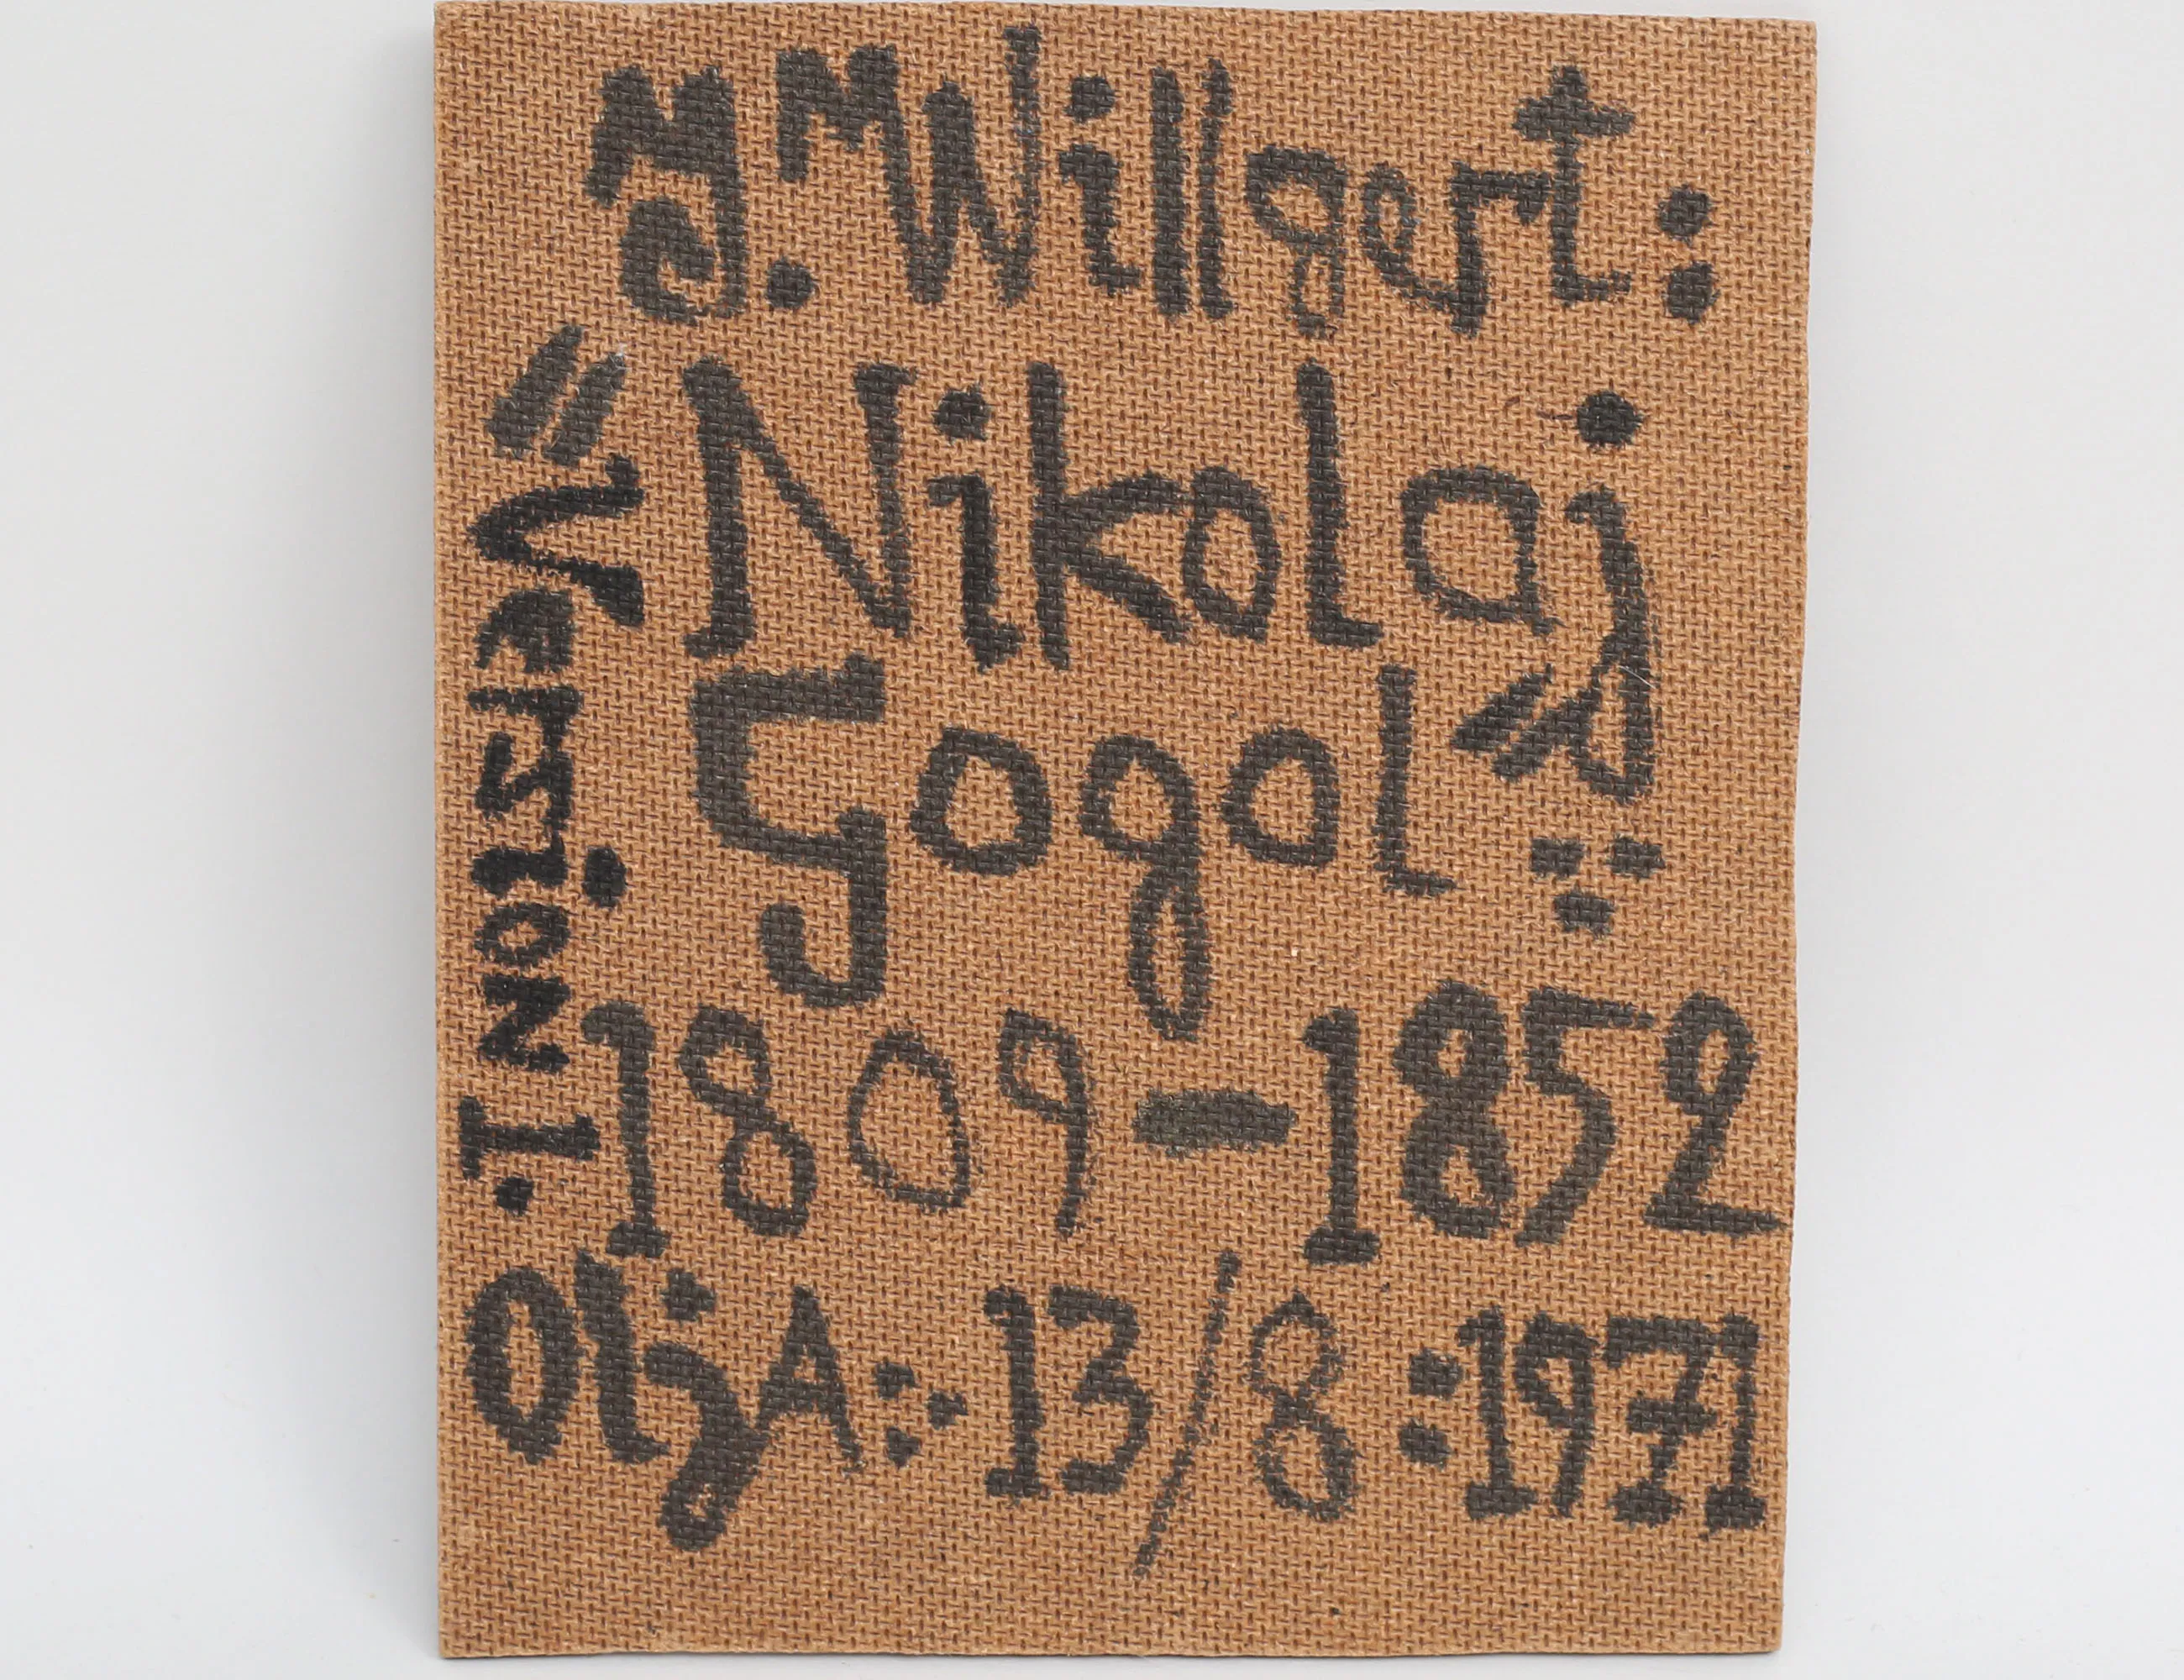 M. M Willgert:
"Nikolaj
Gogol"
1809-1852
OljA: 13/8:1971
Version: I.